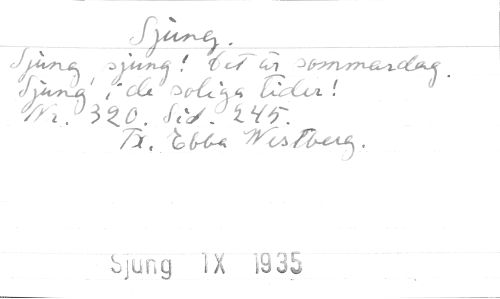 Sjung.
Sjung, sjung! Det är sommardag.
Sjung, i de soliga tider!
Nr. 320. Sid. 245.
Tx. Ebba Westberg.
Sjung IX 1935